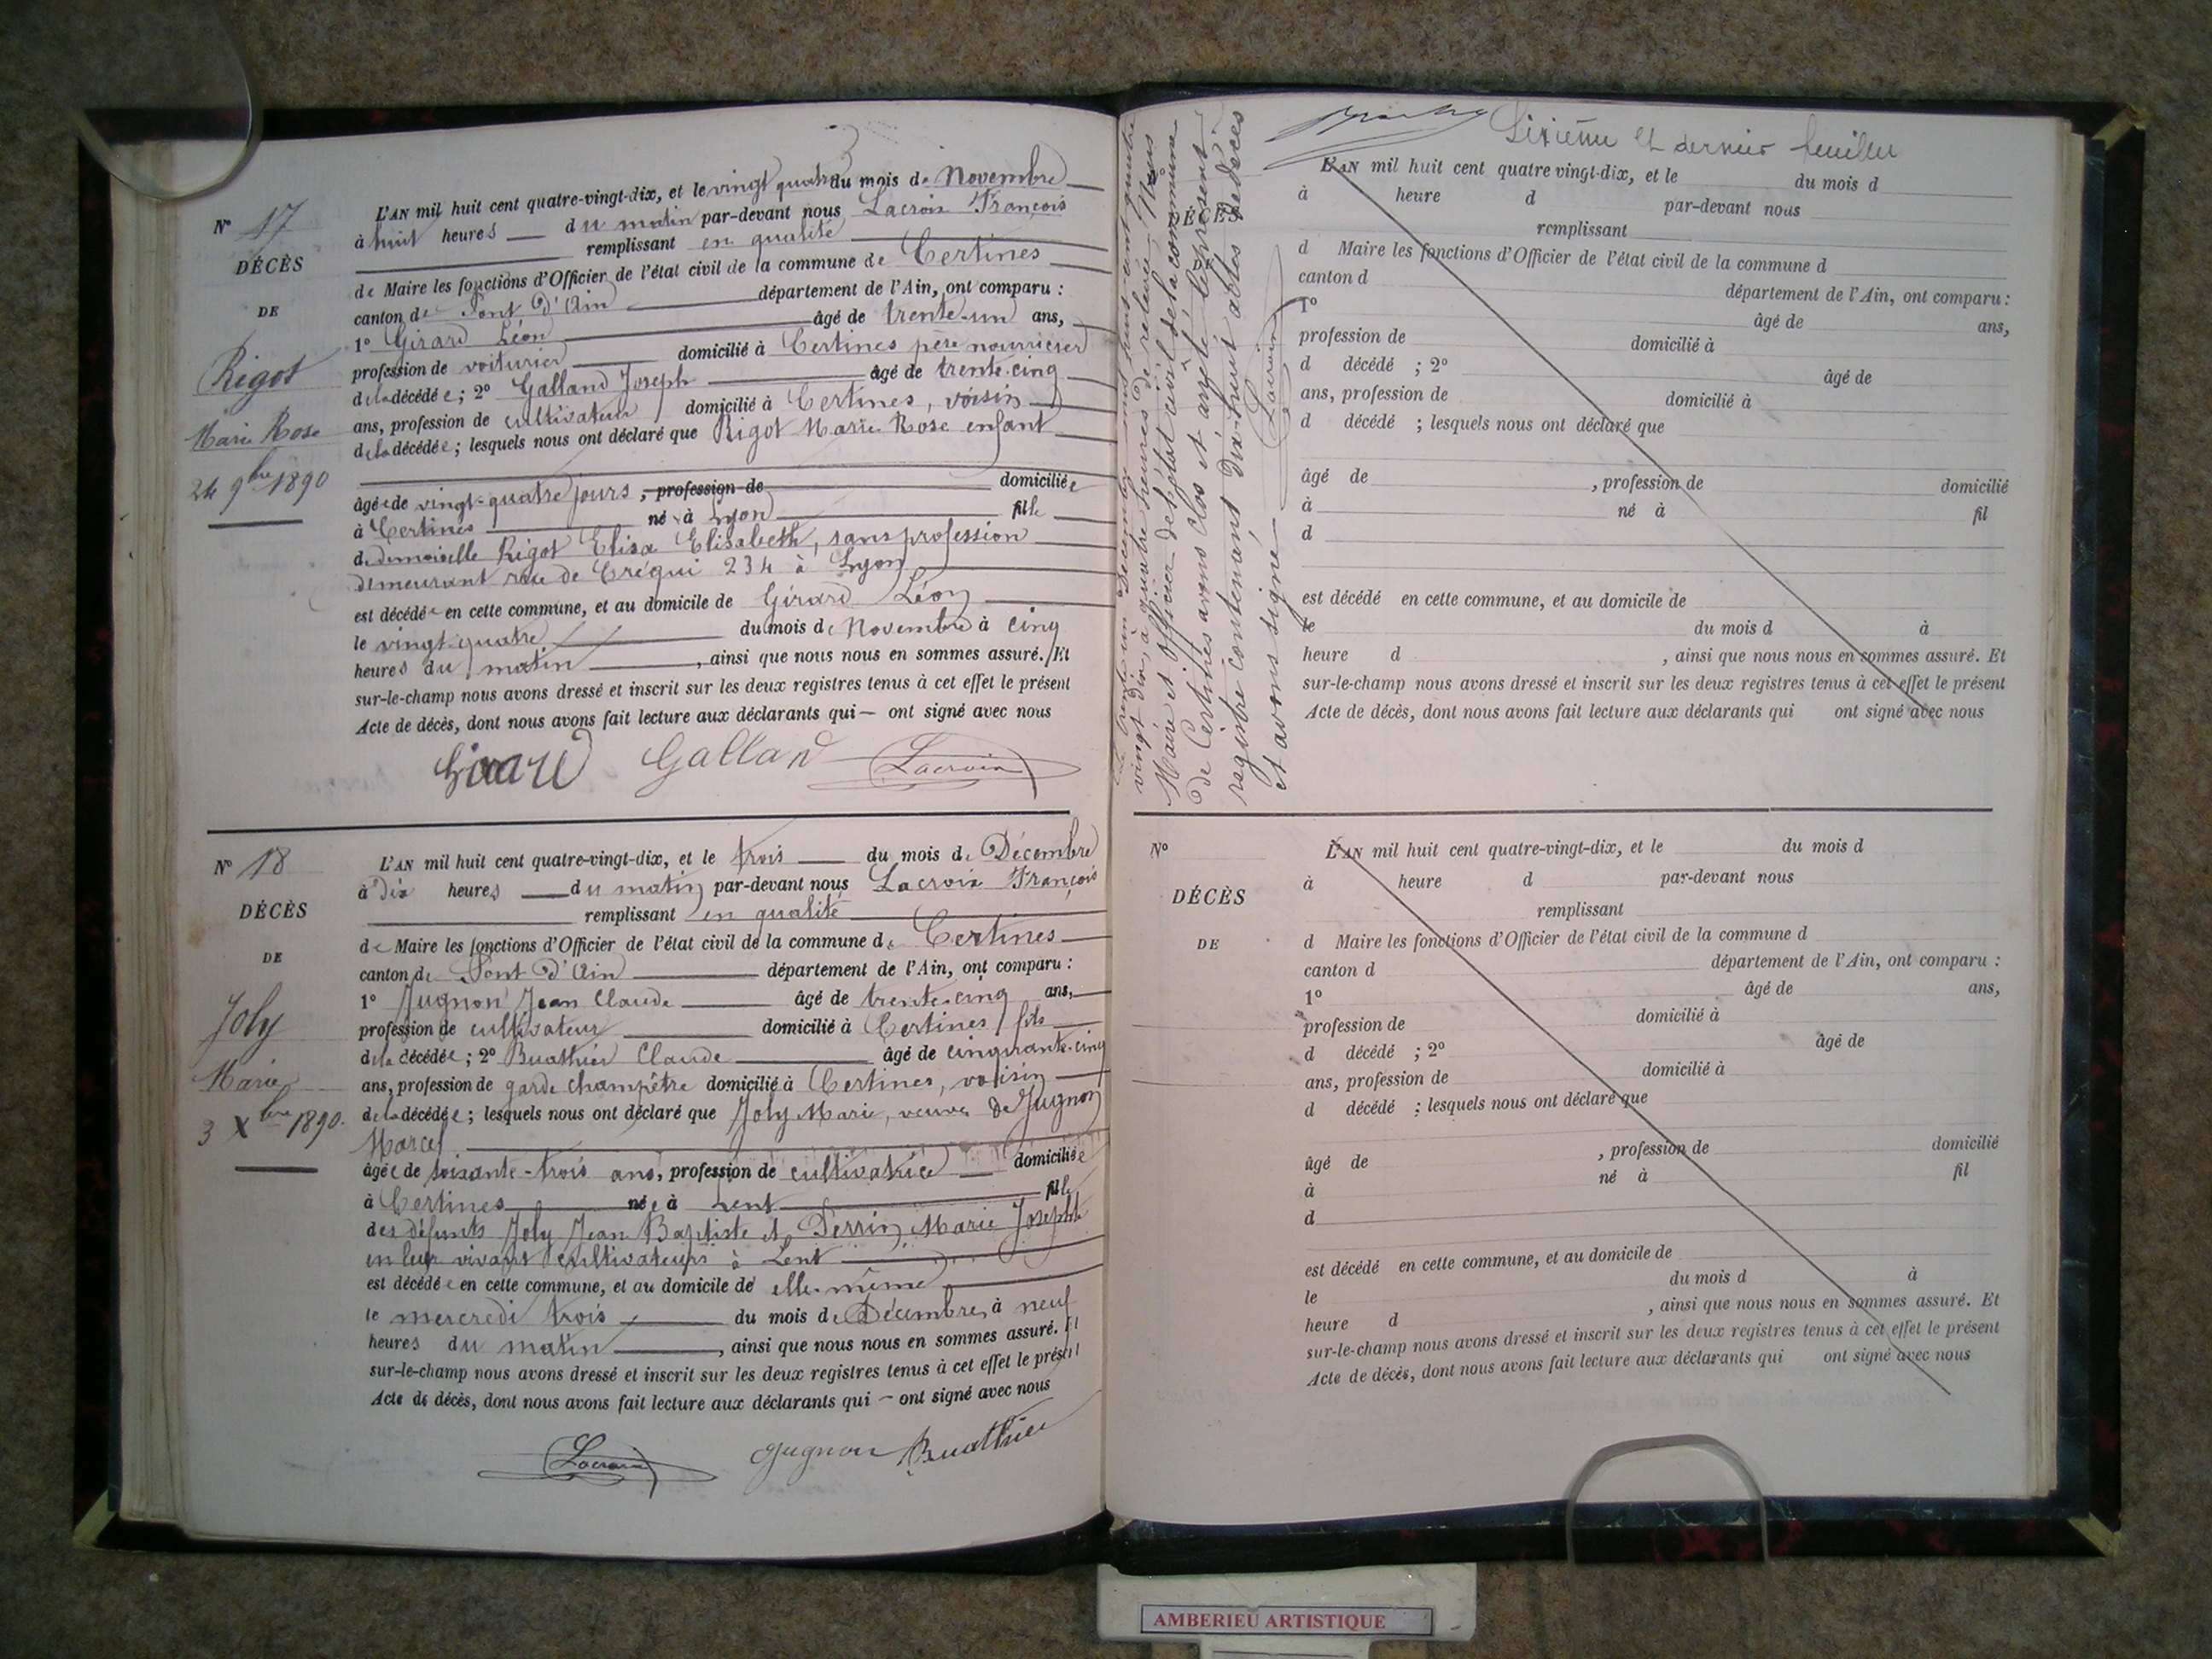 L'AN mil huit cent quatre-vingt-dix, et le vingt quatre du mois de Novembre
N° 17
à huit heures du matin par-devant nous Lacroix François
remplissant en qualité
DÉCÈS
de Maire les fonctions d'Officier de l'état civil de la commune de Certines
DE
canton de Pont d'Ain département de l'Ain, ont comparu :
1° Girard Léon âgé de trente-un ans,
Rigot
profession de voiturier domicilié à Certines père nourricier
de la décédée ; 2° Galland Joseph âgé de trente-cinq
Marie Rose
ans, profession de cultivateur domicilié à Certines, voisin
de la décédée ; lesquels nous ont déclaré que Rigot Marie Rose enfant
24 9bre 1890
âgée de vingt-quatre jours, profession de domiciliée
à Certines née à Lyon fille
de demoiselle Rigot Elisa Elisabeth, sans profession
demeurant rue de Créqui 234 à Lyon
est décédée en cette commune, et au domicile de Girard Léon
le vingt-quatre du mois de Novembre à cinq
heures du matin, ainsi que nous nous en sommes assuré. Et
sur-le-champ nous avons dressé et inscrit sur les deux registres tenus à cet effet le présent
Acte de décès, dont nous avons fait lecture aux déclarants qui — ont signé avec nous
Girard Galland Lacroix
N° 18
L'AN mil huit cent quatre-vingt-dix, et le trois du mois de Décembre
à dix heures du matin par-devant nous Lacroix François
DÉCÈS
remplissant en qualité
de Maire les fonctions d'Officier de l'état civil de la commune de Certines
DE
canton de Pont d'Ain département de l'Ain, ont comparu :
1° Jugnon Jean Claude âgé de trente-cinq ans,
Joly
profession de cultivateur domicilié à Certines, fils
de la décédée ; 2° Buathier Claude âgé de cinquante-cinq
Marie
ans, profession de garde champêtre domicilié à Certines, voisin
de la décédée ; lesquels nous ont déclaré que Joly Marie, veuve de Jugnon
3 Xbre 1890.
Marcel
âgée de soixante-trois ans, profession de cultivatrice domiciliée
à Certines née à Lent fille
des défunts Joly Jean Baptiste et Perrin Marie Josephte
en leur vivant cultivateurs à Lent
est décédée en cette commune, et au domicile de elle-même
le mercredi trois du mois de Décembre à neuf
heures du matin, ainsi que nous nous en sommes assuré. Et
sur-le-champ nous avons dressé et inscrit sur les deux registres tenus à cet effet le présent
Acte de décès, dont nous avons fait lecture aux déclarants qui — ont signé avec nous
Lacroix Jugnon Buathier
Le trente-un Décembre mil huit cent quatre
vingt dix, à quatre heures de relevée Nous
Maire et Officier de l'état civil de la commune
de Certines avons clos et arrêté le présent
registre contenant dix-huit actes de décès
et avons signé
Lacroix
Sixième et dernier feuillet
L'AN mil huit cent quatre vingt-dix, et le du mois d
à heure d par-devant nous
DÉCÈS
remplissant
d Maire les fonctions d'Officier de l'état civil de la commune d
canton d département de l'Ain, ont comparu :
1° âgé de ans,
profession de domicilié à
d décédé ; 2° âgé de
ans, profession de domicilié à
d décédé ; lesquels nous ont déclaré que
âgé de , profession de domicilié
à né à fil
d
est décédé en cette commune, et au domicile de
le du mois d à
heure d , ainsi que nous nous en sommes assuré. Et
sur-le-champ nous avons dressé et inscrit sur les deux registres tenus à cet effet le présent
Acte de décès, dont nous avons fait lecture aux déclarants qui ont signé avec nous
N°
L'AN mil huit cent quatre-vingt-dix, et le du mois d
à heure d par-devant nous
DÉCÈS
remplissant
DE
d Maire les fonctions d'Officier de l'état civil de la commune d
canton d département de l'Ain, ont comparu :
1° âgé de ans,
profession de domicilié à
d décédé ; 2° âgé de
ans, profession de domicilié à
d décédé ; lesquels nous ont déclaré que
âgé de , profession de domicilié
à né à fil
d
est décédé en cette commune, et au domicile de
le du mois d à
heure d , ainsi que nous nous en sommes assuré. Et
sur-le-champ nous avons dressé et inscrit sur les deux registres tenus à cet effet le présent
Acte de décès, dont nous avons fait lecture aux déclarants qui ont signé avec nous
AMBERIEU ARTISTIQUE